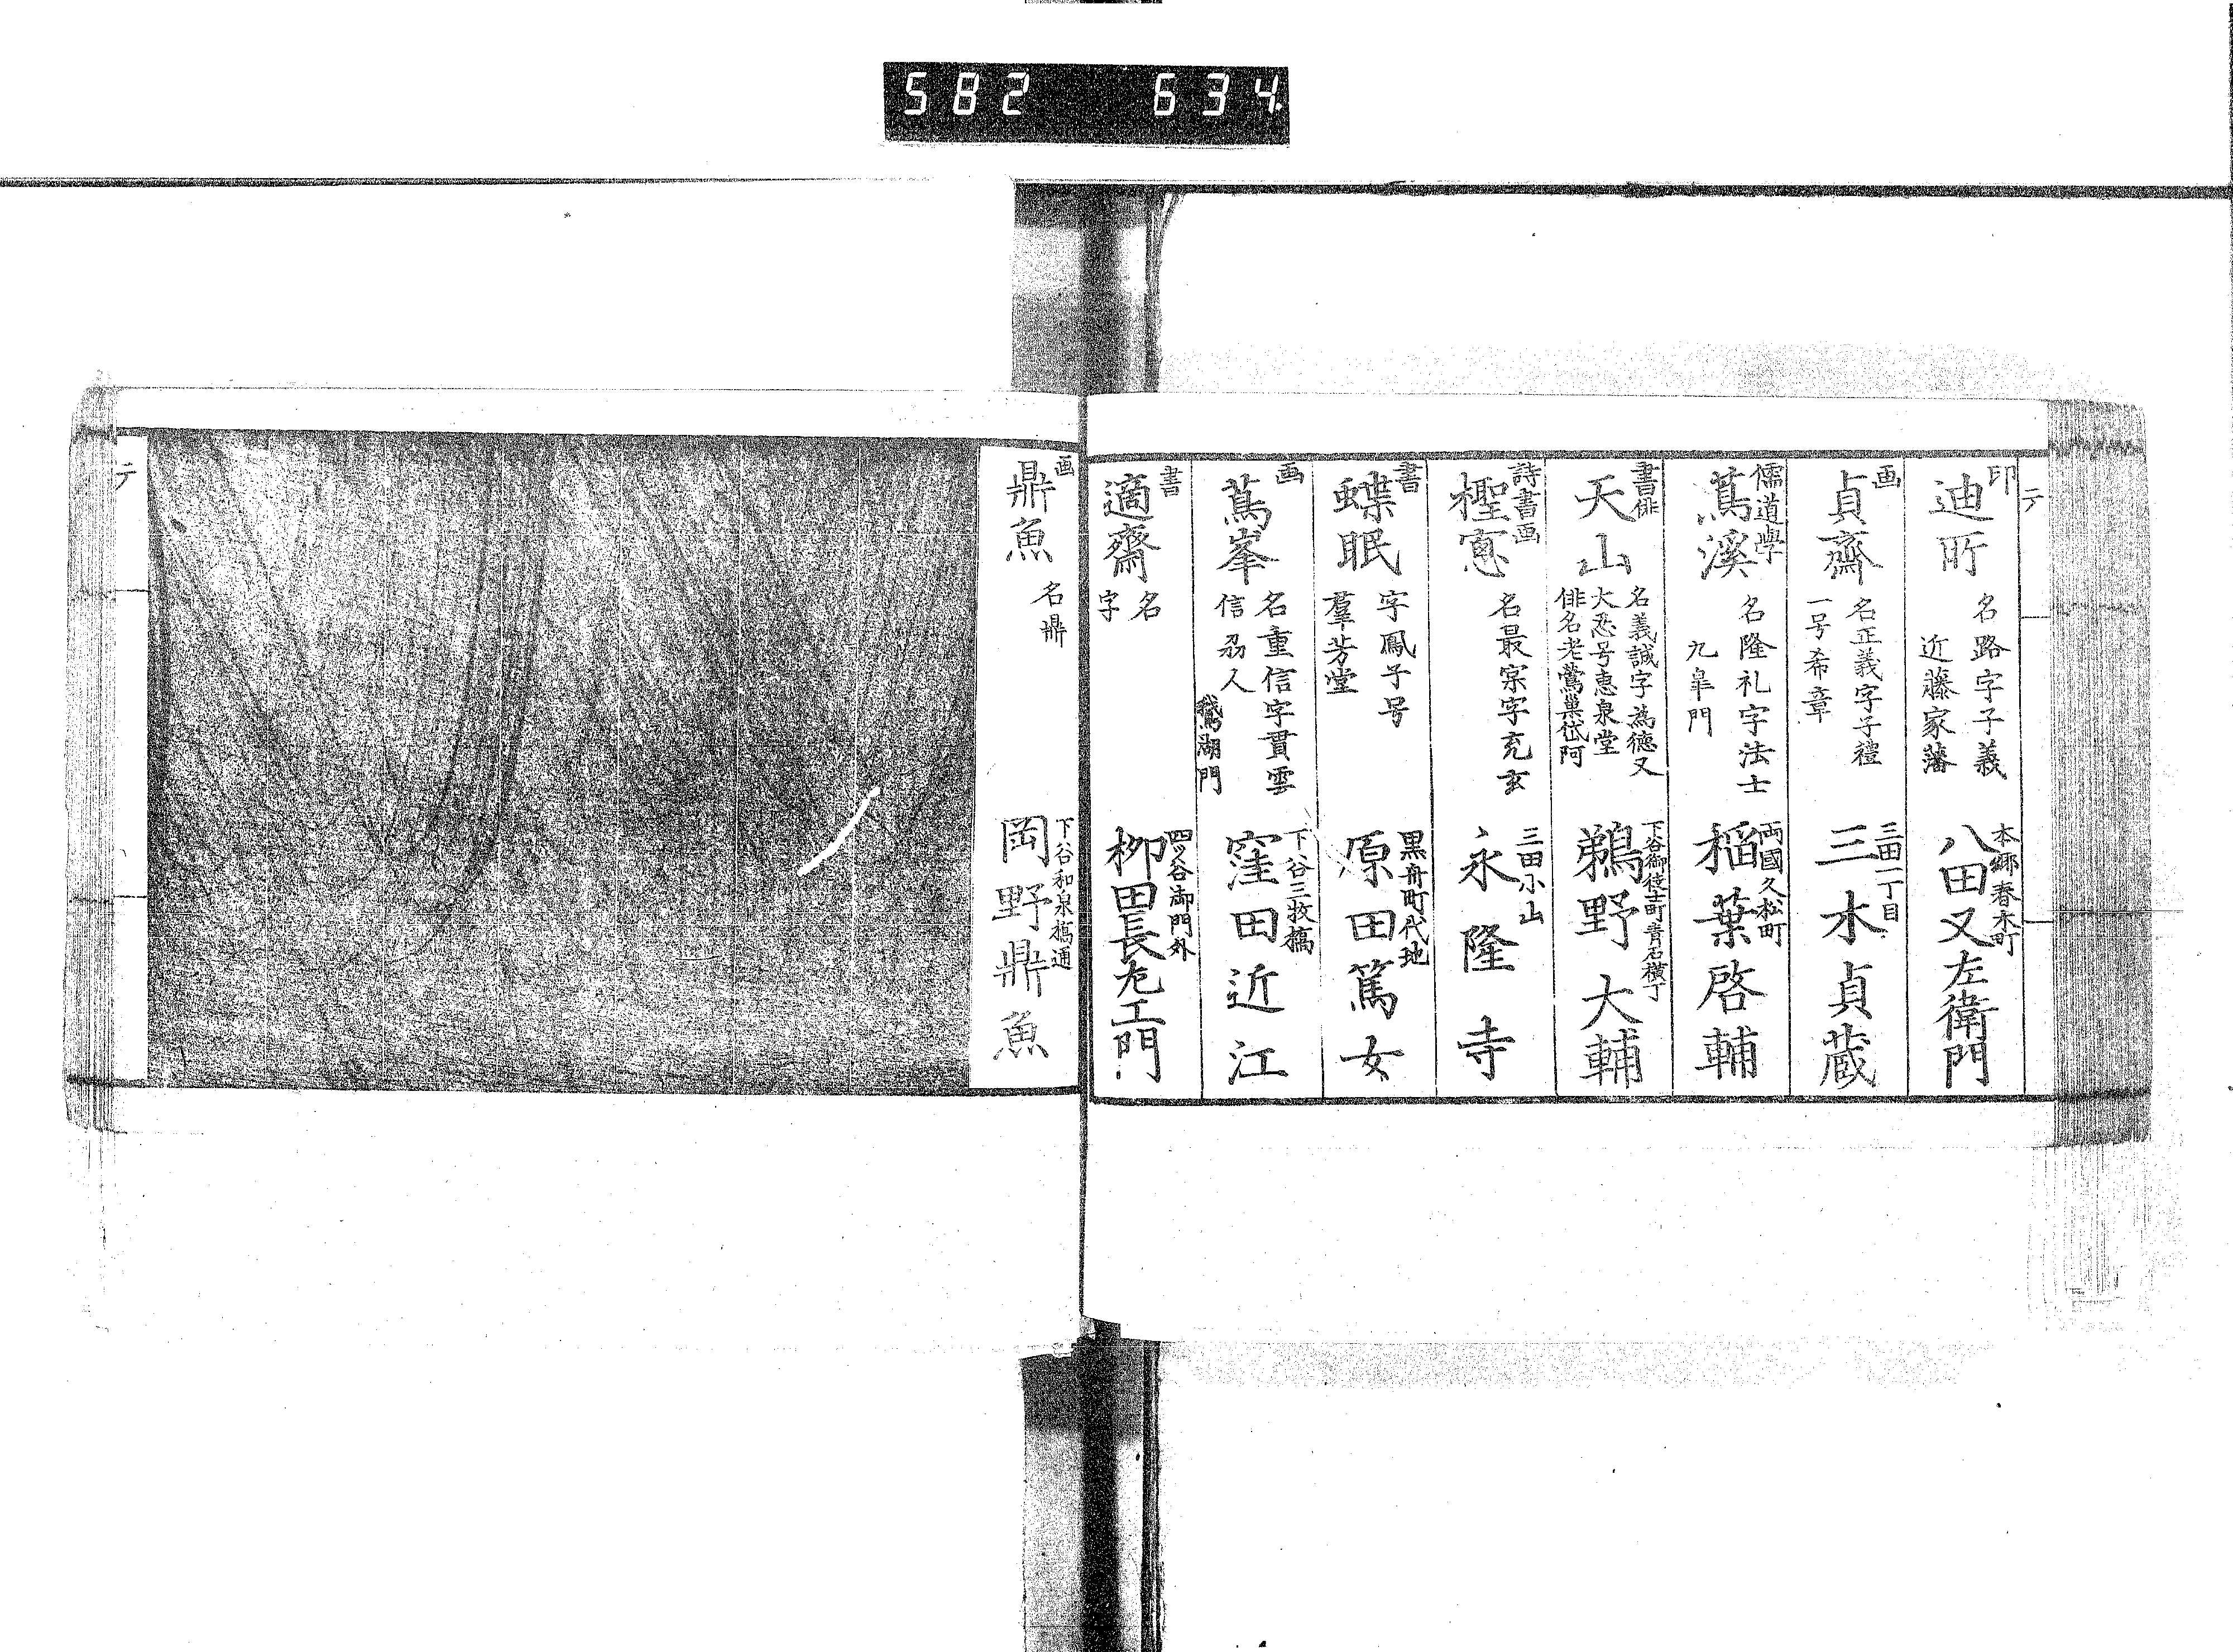 582 634
テ
印
迪所
名路字子義
近藤家藩
本郷春木町
八田又左衛門
画
貞齋
名正義字子禮
一号希章
三田一丁目
三木貞蔵
儒道學
蔦溪
名隆礼字法士
九皐門
両國久松町
稲葉啓輔
書俳
天山
名義誠字為德又
大忍号恵泉堂
俳名老鶯巣岱阿
下谷御徒士町青石横丁
鵜野大輔
詩書画
樫窓
名最宗字充玄
三田小山
永隆寺
書
蝶眠
字鳳子号
羣芳堂
黒舟町代地
原田篤女
画
蔦峯
名重信字貫雲
信刕人
鵞湖門
下谷三枚橋
窪田近江
書
適齋
名
字
四ツ谷御門外
柳田長左エ門
画
鼎魚
名鼎
下谷和泉橋通
岡野鼎魚
テ